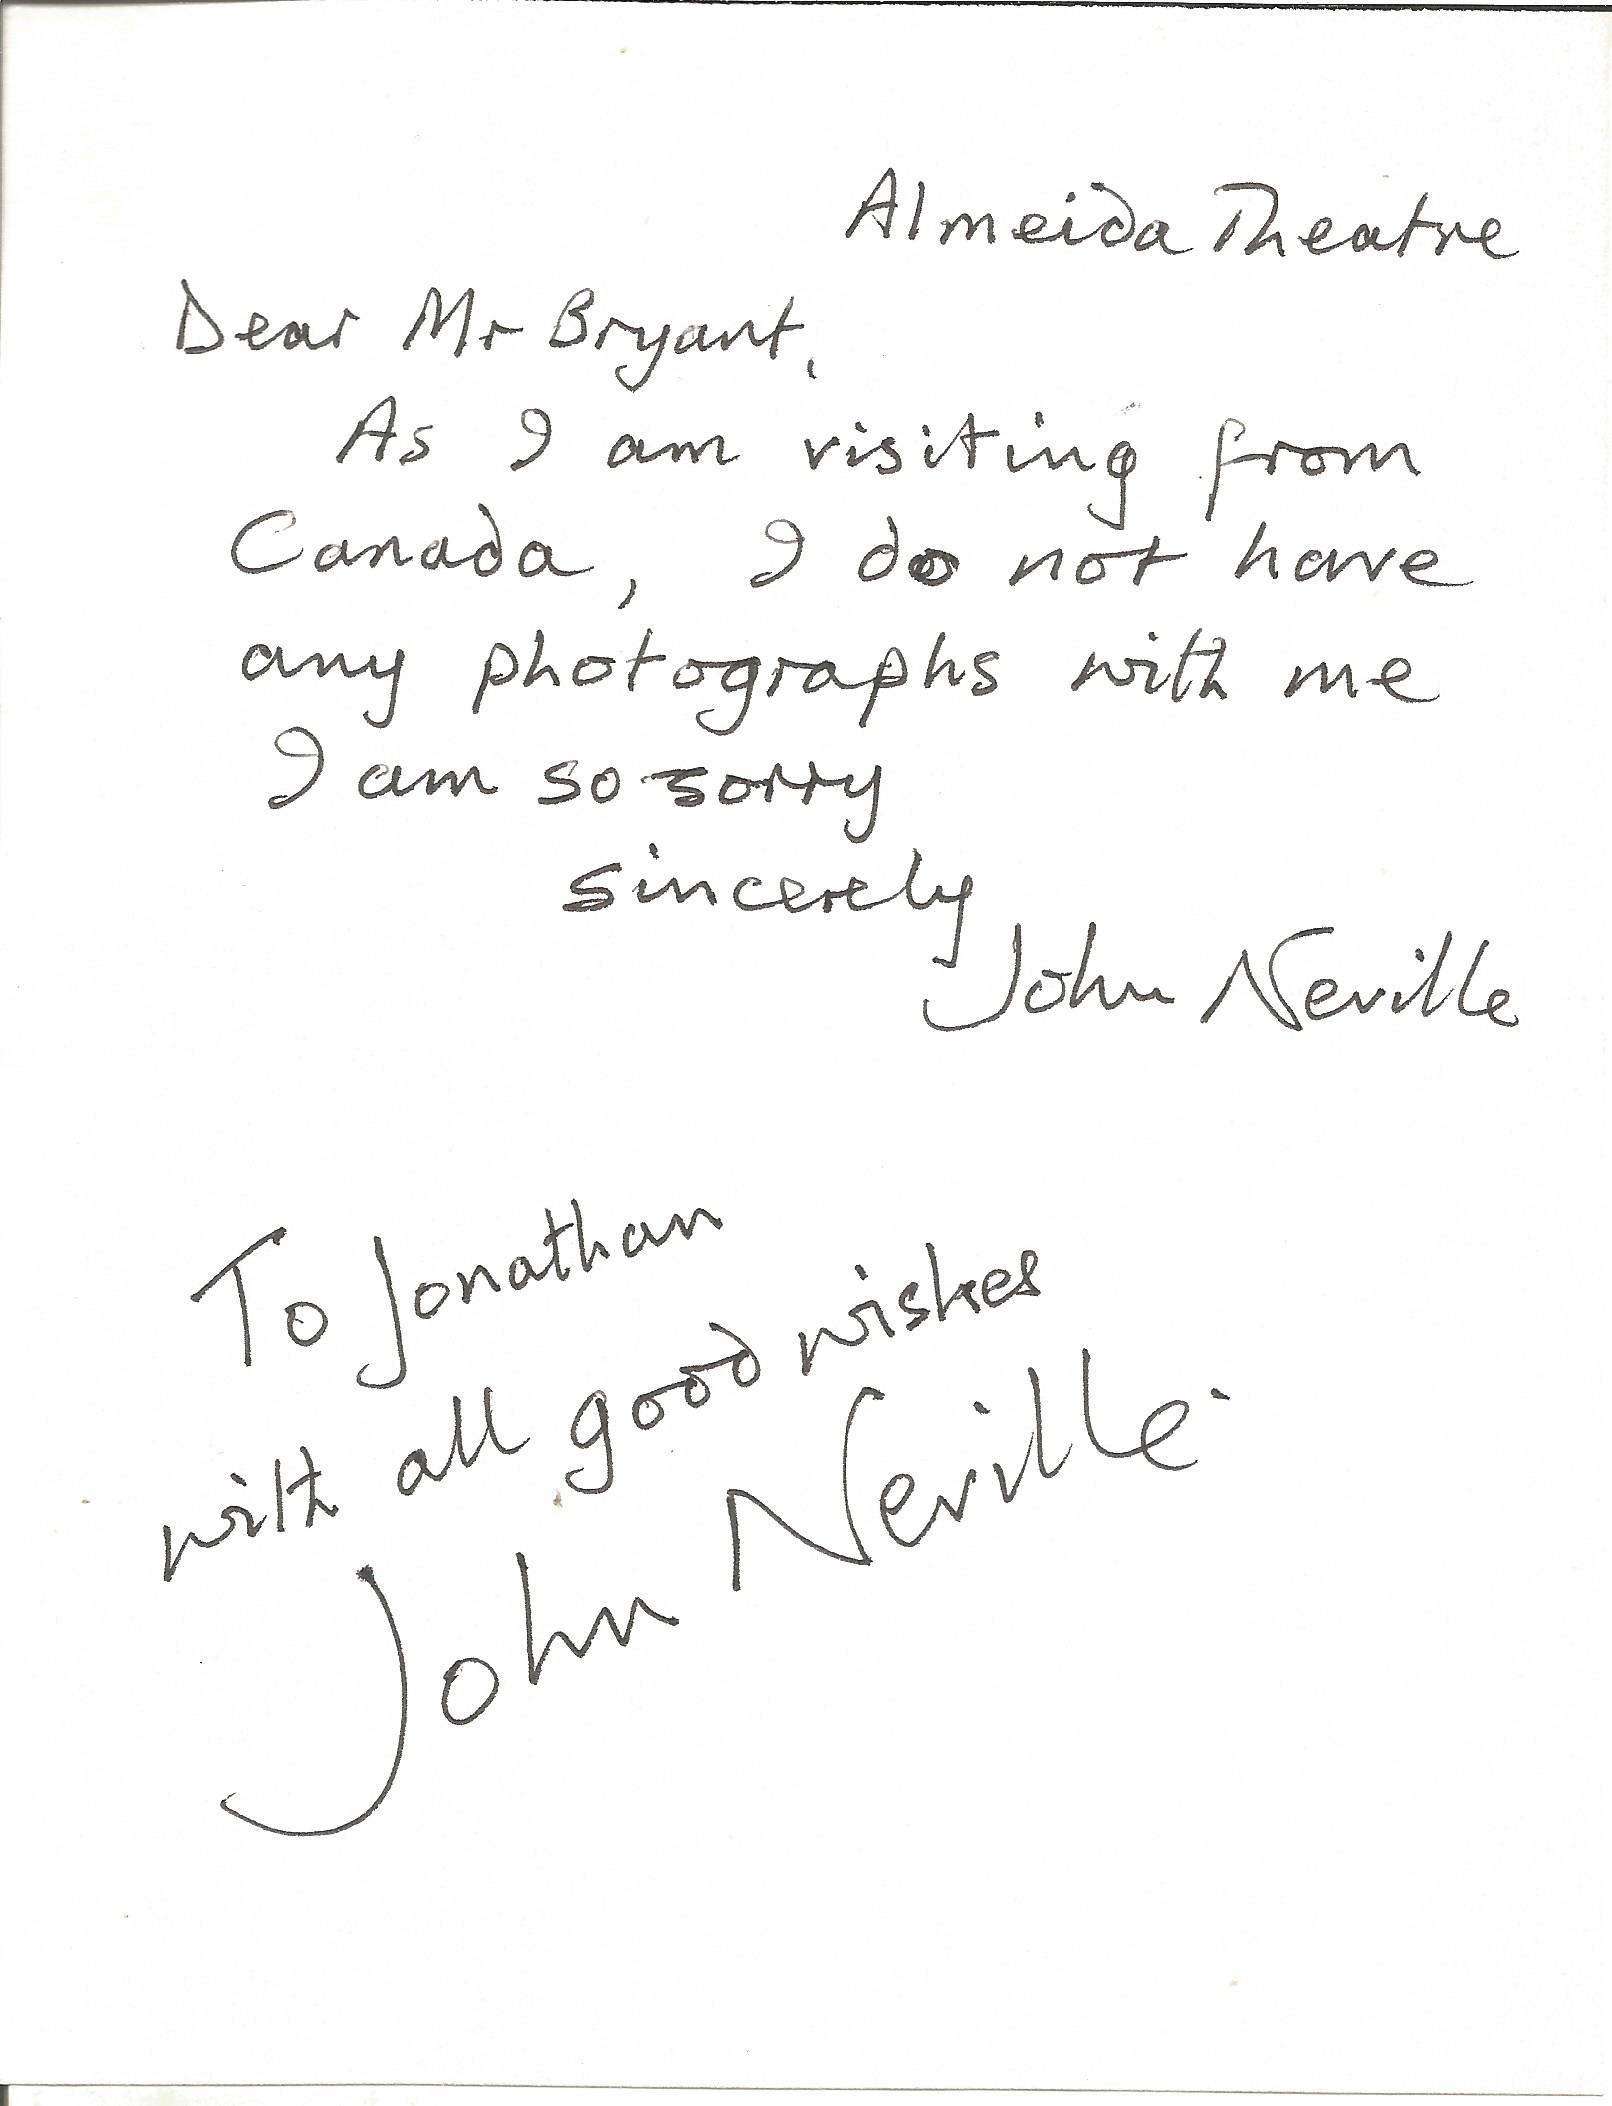 Almeida Theatre
Dear Mr Bryant,
As I am visiting from
Canada, I do not have
any photographs with me
I am so sorry
sincerely
John Neville
To Jonathan
with all good wishes
John Neville.